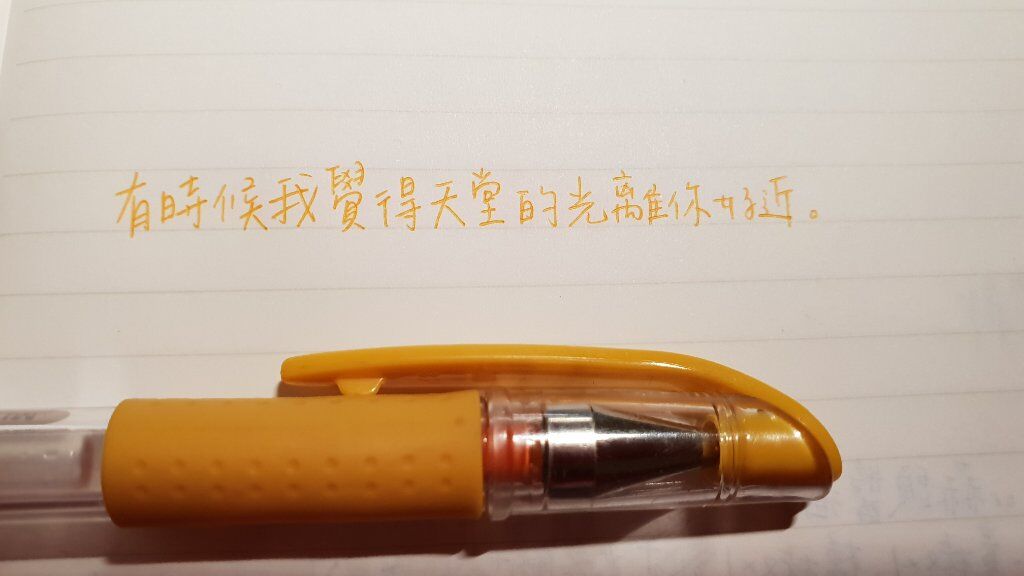 有時候我覺得天堂的光離你好近。